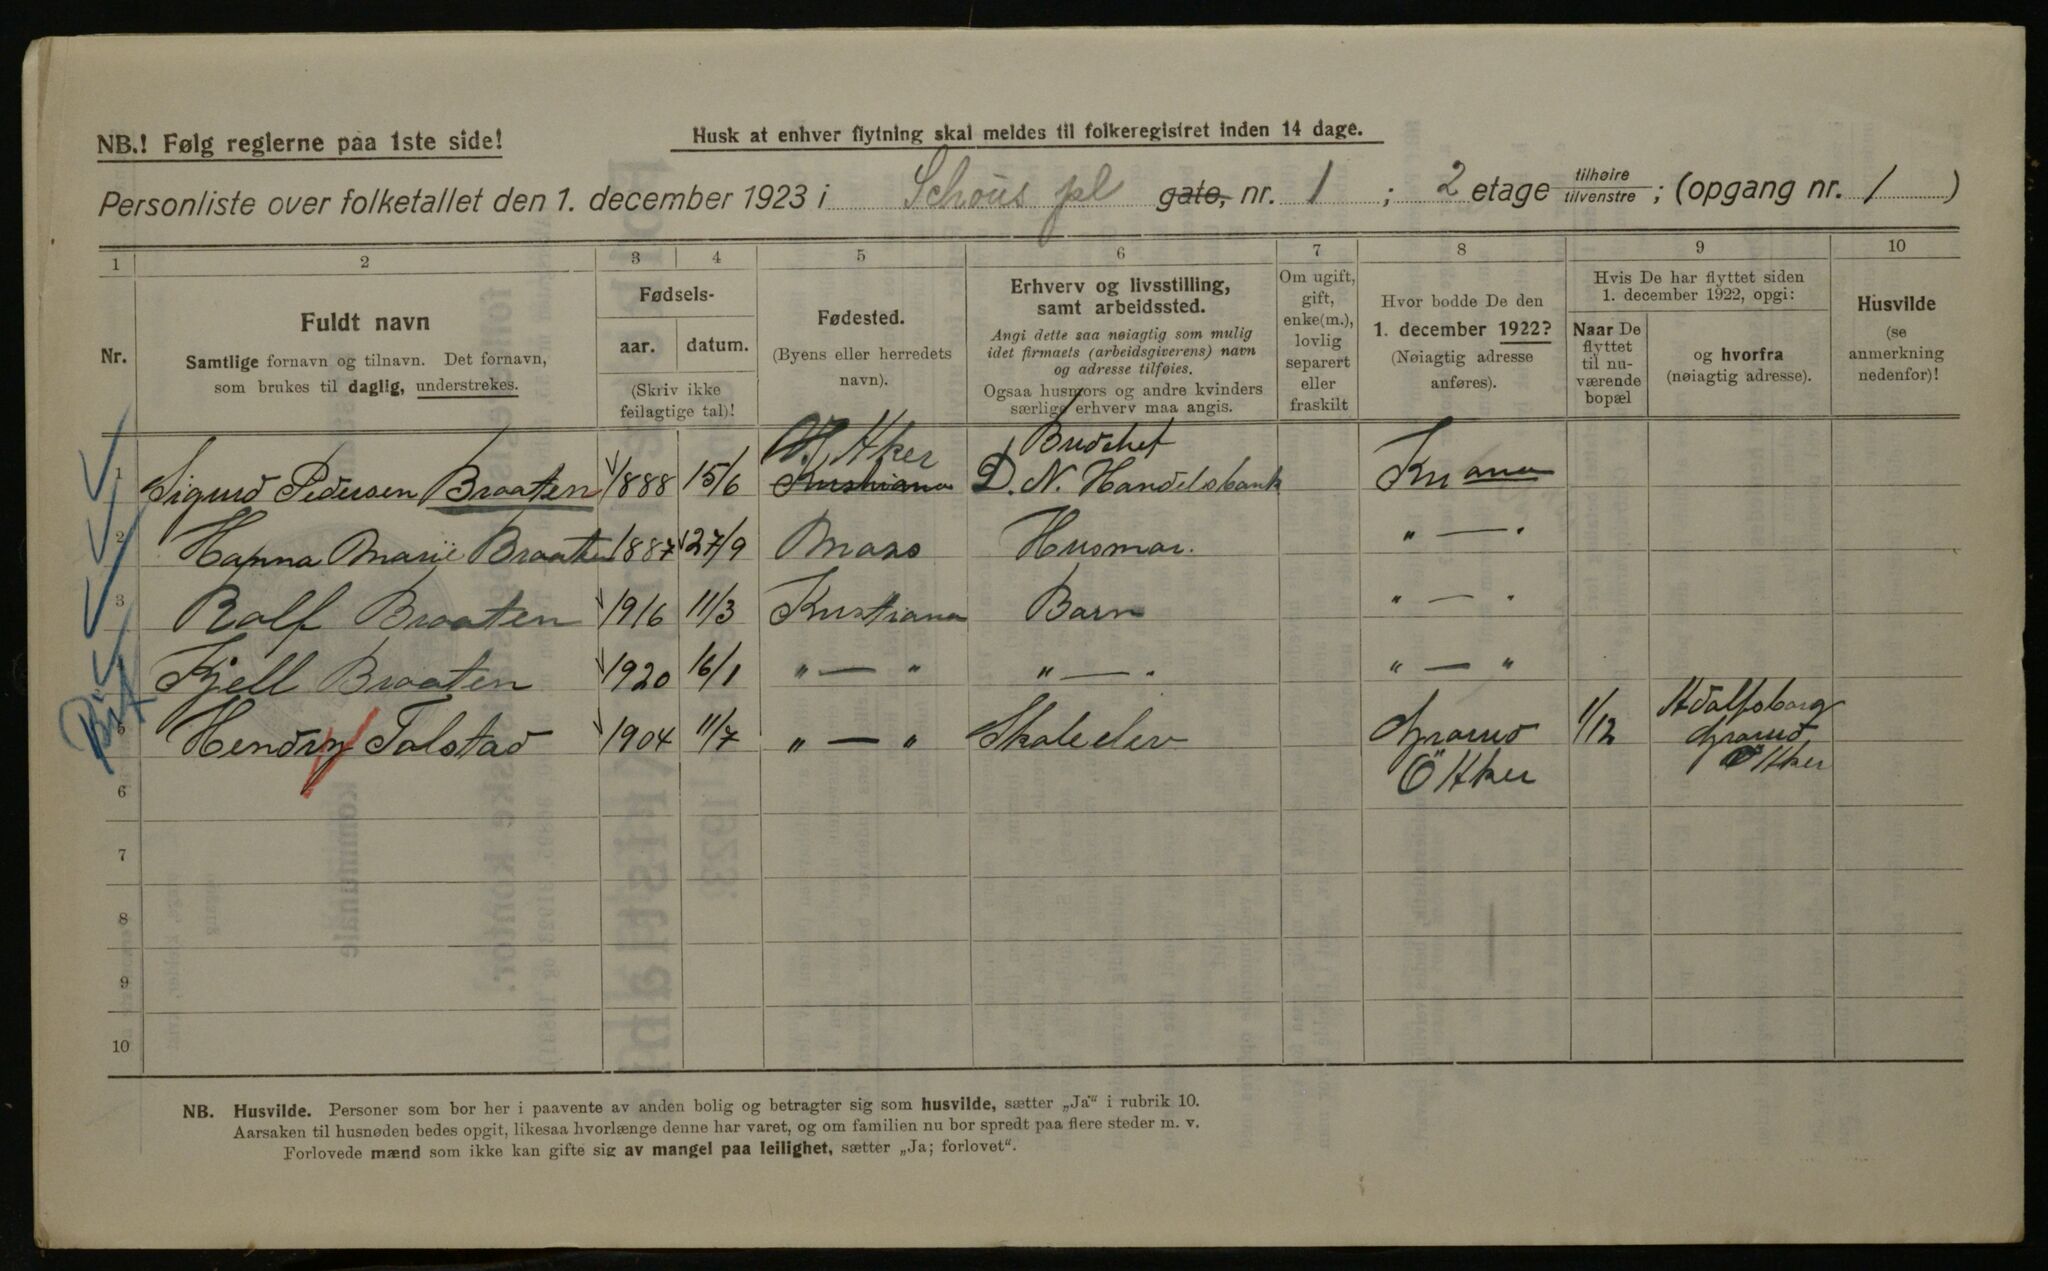 NB.! Følg reglerne paa 1ste side!
Husk at enhver flytning skal meldes til folkeregistret inden 14 dage.
Personliste over folketallet den 1. december 1923 i Schous pl gate, nr. 1 ; 2 etage tilhøire tilvenstre ; (opgang nr. 1 )
1 2 3 4 5 6 7 8 9 10
Nr.
Fuldt navn
Samtlige fornavn og tilnavn. Det fornavn,
som brukes til daglig, understrekes.
Fødsels-
aar. datum.
(Skriv ikke
feilagtige tal)!
Fødested.
(Byens eller herredets
navn).
Erhverv og livsstilling,
samt arbeidssted.
Angi dette saa nøiagtig som mulig
idet firmaets (arbeidsgiverens) navn
og adresse tilføies.
Ogsaa husmors og andre kvinders
særlige erhverv maa angis.
Om ugift,
gift,
enke(m.),
lovlig
separert
eller
fraskilt
Hvor bodde De den
1. december 1922?
(Nøiagtig adresse
anføres).
Hvis De har flyttet siden
1. december 1922, opgi:
Naar De
flyttet
til nu-
værende
bopæl
og hvorfra
(nøiagtig adresse).
Husvilde
(se
anmerkning
nedenfor)!
Aker Budchef
1 Sigurd Pedersen Braaten 1888 15/6 Kristiania D. N. Handelsbank Kr ania
2 Hanna Marie Braaten 1887 27/9 Moss Husmor. " — "
3 Rolf Braaten 1916 11/3 Kristiania Barn " — "
Kjell Braaten 1920 16/1 " — " " — " " — "
5 Hendry Tolstad 1904 11/7 " — " Skoleelev Grorud 1/12 Adolfsborg Grorud
6 Ö Aker Ö Aker
7
8
9
10
NB. Husvilde. Personer som bor her i paavente av anden bolig og betragter sig som husvilde, sætter „Ja“ i rubrik 10.
Aarsaken til husnøden bedes opgit, likesaa hvorlænge denne har varet, og om familien nu bor spredt paa flere steder m. v.
Forlovede mænd som ikke kan gifte sig av mangel paa leilighet, sætter „Ja; forlovet“.